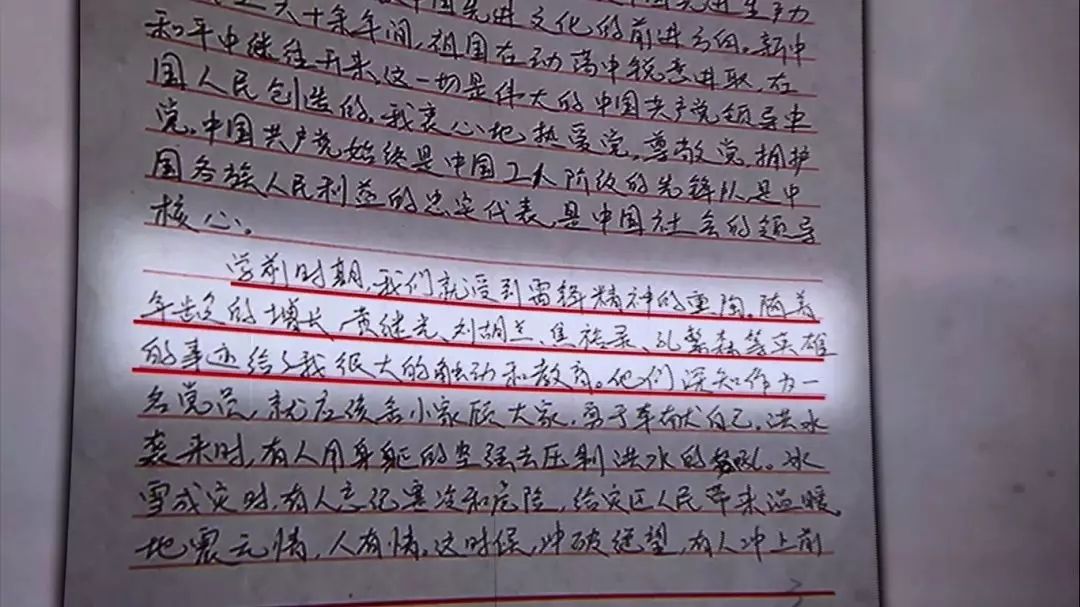 六十余年间,祖国在动荡中锐意进取,在
和平中继往开来,这一切是伟大的中国共产党领导中
国人民创造的。我衷心地热爱党,尊敬党,拥护
党。中国共产党始终是中国工人阶级的先锋队是中
国各族人民利益的忠实代表,是中国社会的领导
核心。
学前时期,我们就受到雷锋精神的熏陶。随着
年龄的增长,黄继光、刘胡兰、焦裕录、孔繁森等英雄
的事迹给了我很大的触动和教育。他们深知作为一
名党员,就应该舍小家顾大家,勇于奉献自己。洪水
袭来时,有人用身躯的坚强去压制洪水的怒吼。冰
雪成灾时,有人忘记寒冷和危险,给灾区人民带来温暖。
地震无情,人有情。这时候,冲破绝望,有人冲上前